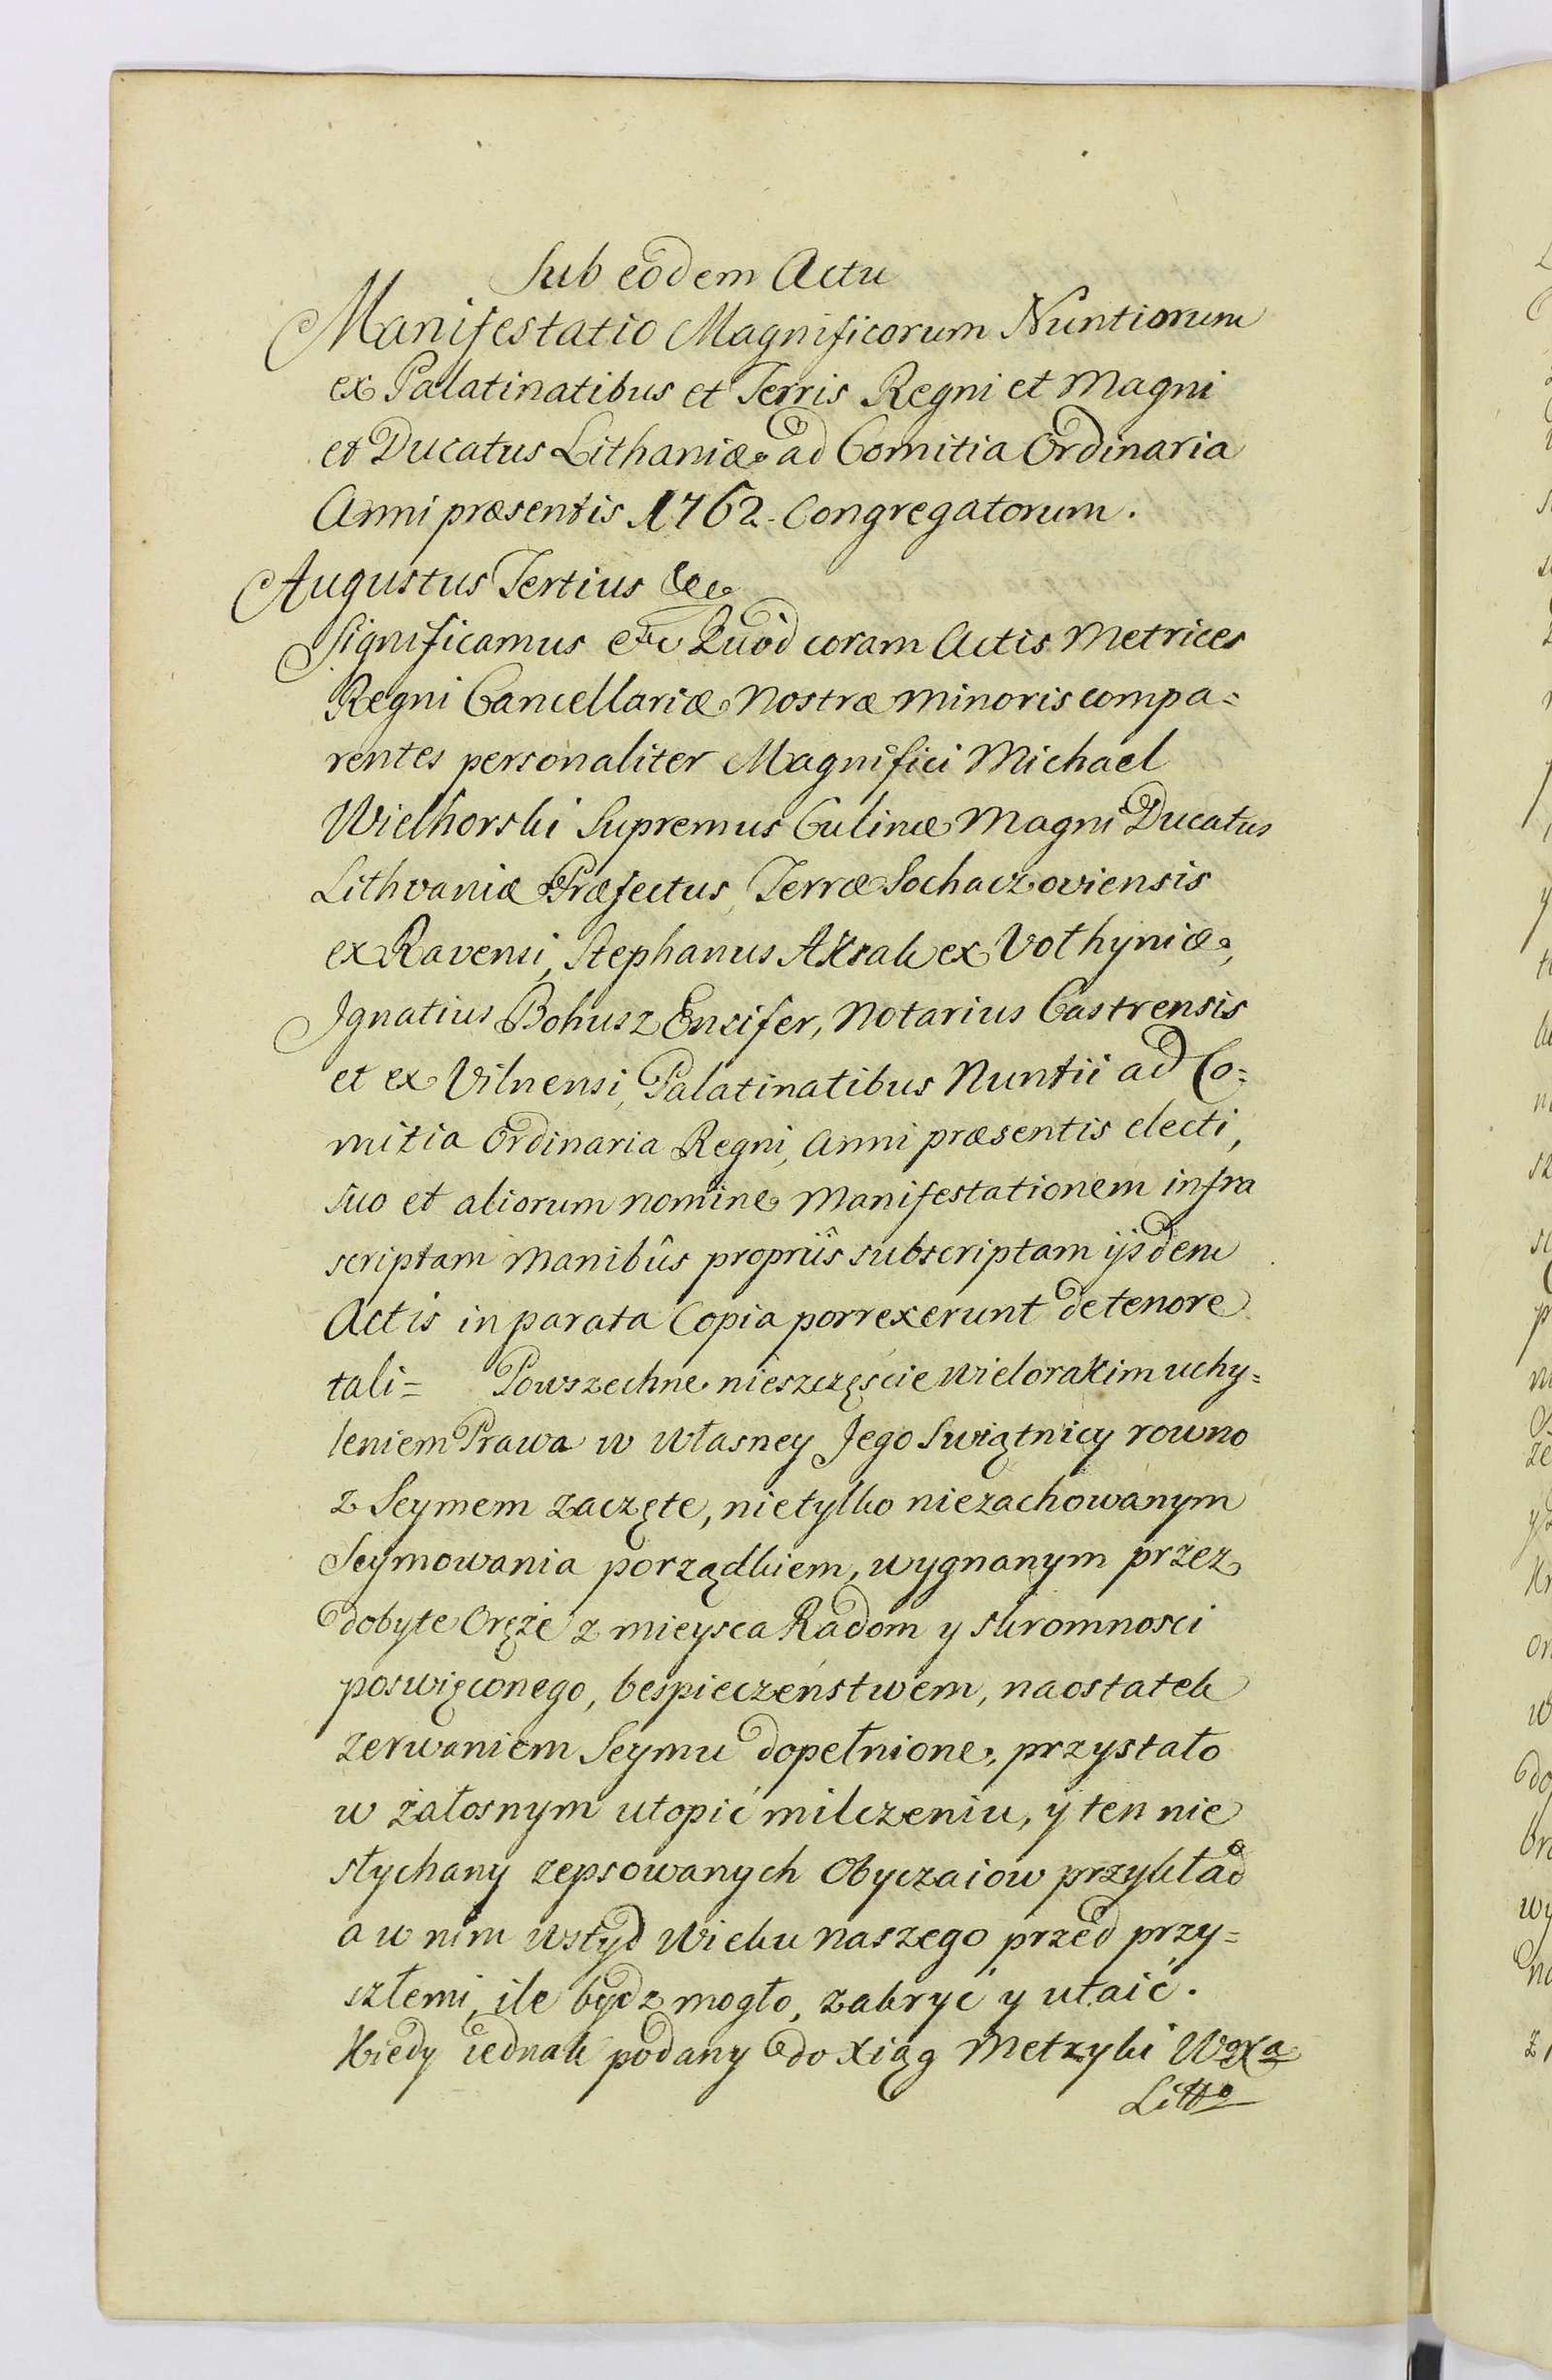 Sub eodem Actu
Manifestatio Magnificorum Nuntiorum
ex Palatinatibus et Terris Regni et Magni
et Ducatus Lithaniæ ad Comitia Ordinaria
Anni præsentis 1762. Congregatorum.
Augustus Tertius &c
Significamus &c Quod coram Actis Metrices
Regni Cancellariæ Nostræ minoris compa=
rentes personaliter Magnifici Michael
Wielhorski Supremus Culinæ Magni Ducatus
Lithvaniæ Præfectus, Terræ Sochaczoviensis
ex Ravensi, Stephanus Aksak ex Volhyniæ,
Ignatius Bohusz Ensifer, Notarius Castrensis
et ex Vilnensi, Palatinatibus Nuntii ad Co=
mitia Ordinaria Regni, Anni præsentis electi,
suo et aliorum nomine Manifestationem infra
scriptam Manibûs propriis subscriptam ijsdem
Actis in parata Copia porrexerunt de tenore
tali= Powszechne nieszczęście wielorakim uchy=
leniem Prawa w własney Jego Swiątnicy rowno
z Seymem zaczęte, nietylko niezachowanym
Seymowania porządkiem, wygnanym przez
dobyte Oręże z mieysca Radom y skromnosci
poswięconego, bespieczeństwem, naostatek
zerwaniem Seymu dopełnione, przystało
w żałosnym utopić milczeniu, y ten nie
słychany zepsowanych Obyczaiow przykład
a w nim wstyd Wieku naszego przed przy=
szłemi, ile bydz mogło, zakryć y utaić.
Kiedy iednak podany do Xiąg Metryki WoXa
Litto